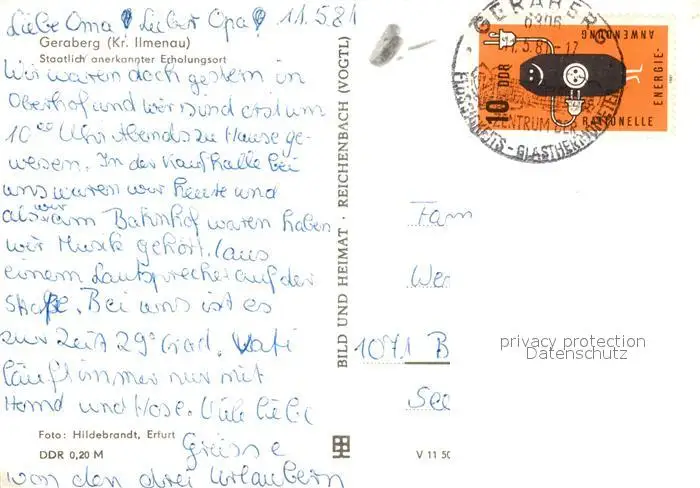 Liebe Oma! Lieber Opa! 11.5.81
Geraberg (Kr. Ilmenau)
Staatlich anerkannter Erholungsort
Wir waren doch gestern in
Oberhof und wir sind erst um
10 00 Uhr Abends zu Hause ge-
wesen. In der Kaufhalle bei
uns waren wir heute und
als wir am Bahnhof waren haben
wir Musik gehört. (aus
einem Lautsprecher auf der
Straße. Bei uns ist es
zur Zeit 29° Grad. Vati
läuft immer nur mit
Hemd und Hose. Viele liebe
Grüsse
von den drei Urlaubern
Foto: Hildebrandt, Erfurt
DDR 0,20 M
V 11 50
BILD UND HEIMAT · REICHENBACH (VOGTL)
GERABERG
6306
11.5.81-17
ZENTRUM DER
EIGENSCHAFTS - GLASTHERMOMETER
10 DDR
RATIONELLE
ENERGIE-
ANWENDUNG
Fam
Wer
1071 B
See
privacy protection
Datenschutz